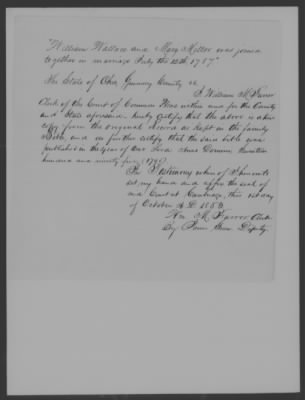 "William Wallace and Mary Miller was joined
together in marriage July the 12th 1787"
The State of Ohio, Guernsey County ss
I William M. Farrar
Clerk of the Court of Common Pleas within and for the County
and State aforesaid hereby certify that the above is a true
copy from the original record as kept in the family
Bible, and do further certify that the said bible was
published in the year of Our Lord Anno Domini Seventeen
hundred and ninety five (1795)
In Testimony whereof I hereunto
set my hand and affix the seal of
said Court at Cambridge, this 1st day
of October A.D. 1853
Wm. M. Farrar Clerk
By Deputy